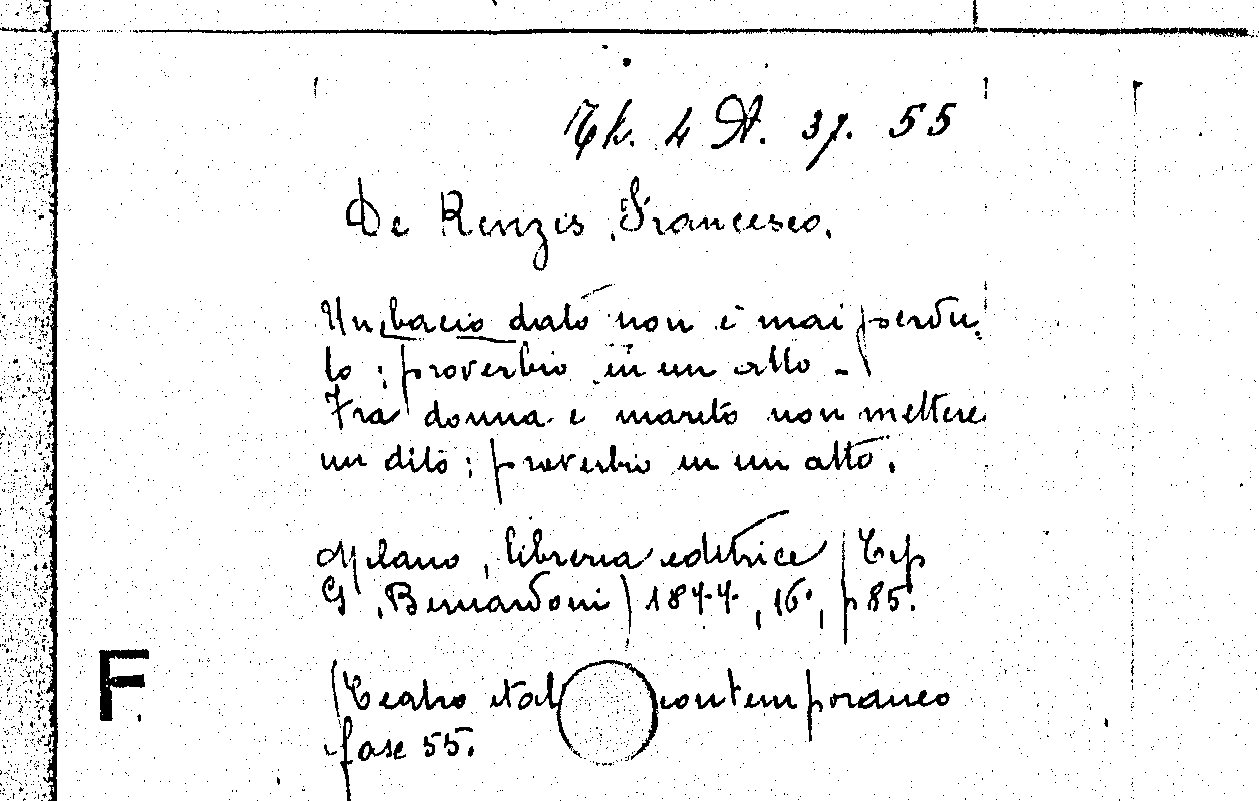 Th. 4 A. 37. 55
De Renzis, Francesco.
Un bacio dato non è mai perdu-
to ; proverbio in un atto -
Fra donna e marito non mettere
un dito ; proverbio in un atto.
Milano, libreria editrice (Tip
G. Bernardoni) 1877, 16°, p 85.
F
(Teatro ital contemporaneo
fasc 55.